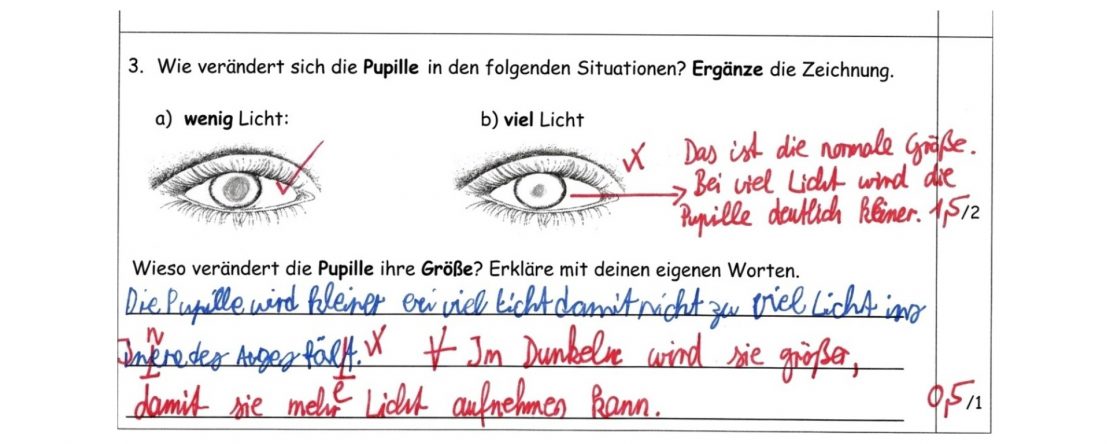 3. Wie verändert sich die Pupille in den folgenden Situationen? Ergänze die Zeichnung.
a) wenig Licht:
b) viel Licht
Das ist die normale Größe.
Bei viel Licht wird die
Pupille deutlich kleiner. 1,5/2
Wieso verändert die Pupille ihre Größe? Erkläre mit deinen eigenen Worten.
Die Pupille wird kleiner viel Licht damit nicht zu viel Licht ins
des Auges fällt. + Im Dunkeln wird sie größer,
damit sie mehr Licht aufnehmen kann. 0,5/1